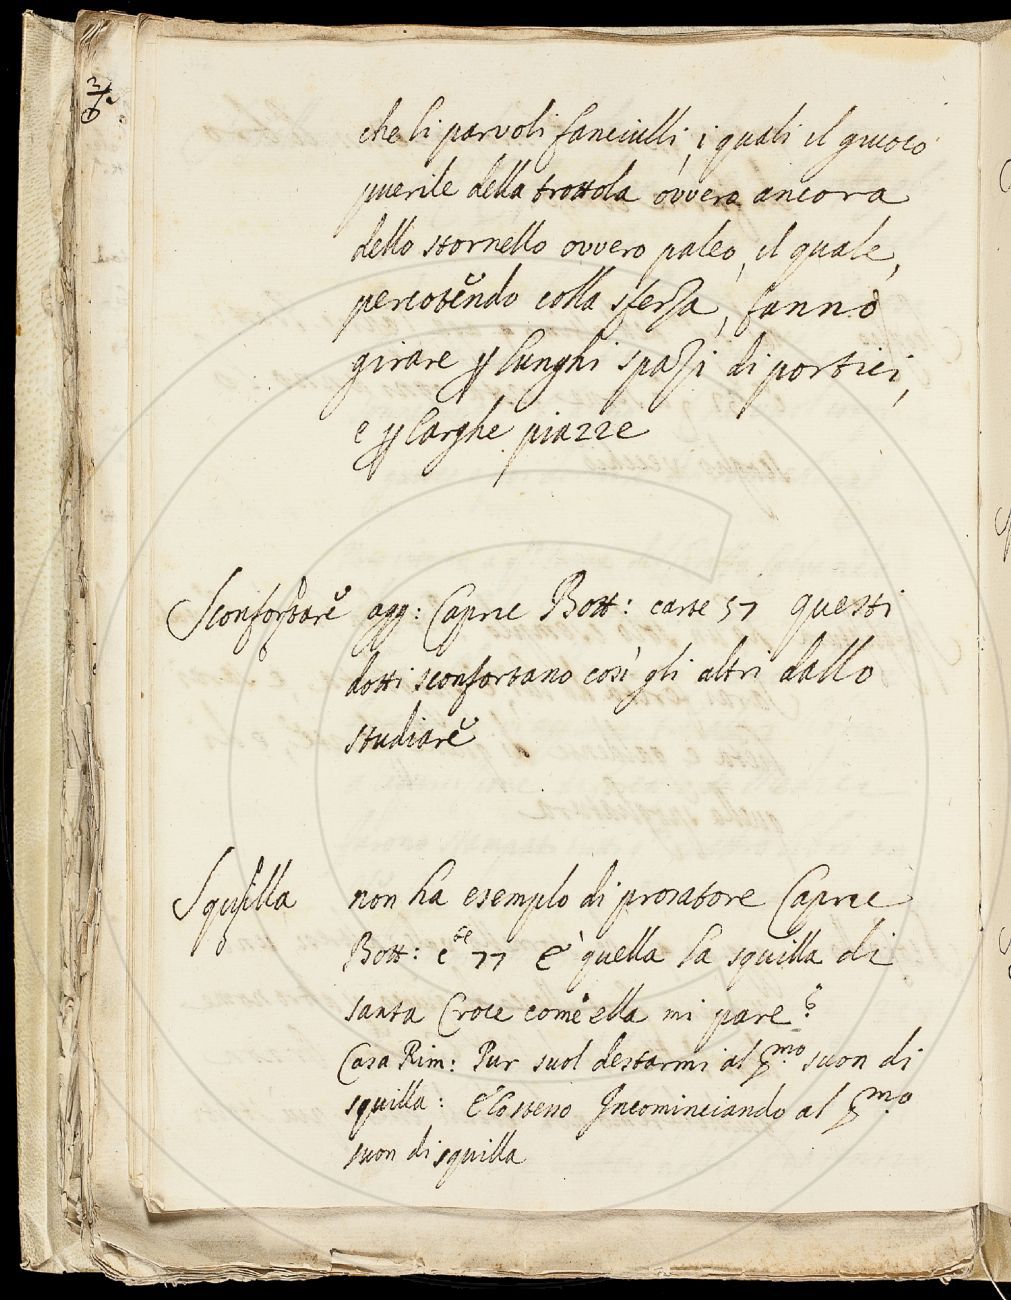 che li parvoli fanciulli, i quali il giuoco
puerile della trottola ovvero ancora
dello stornello ovvero paleo, il quale,
percotendo colla sferza, fanno
girare p lunghi spazi di portici,
e p larghe piazze
Sconfortare agg: Capric Bott: carte 57 questi
dotti sconfortano così gli altri dallo
studiare
Squilla non ha esempio di prosatore Capric
Bott: c^te 77 E' quella la squilla di
santa Croce come ella mi pare?
Casa Rim: Pur suol destarmi al p^mo suon di
squilla: E lo steno Incominciando al p^mo
suon di squilla